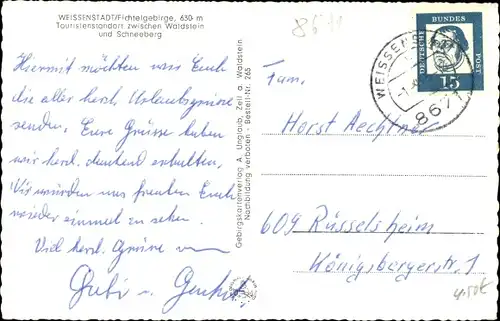 WEISSENSTADT/Fichtelgebirge, 630 m
Touristenstandort zwischen Waldstein
und Schneeberg
8671
Hiermit möchten wir Euch
die aller herzl. Urlaubsgrüsse
senden. Eure Grüsse haben
wir herzl. dankend erhalten.
Wir würden uns freuen Euch
wieder einmal zu sehen.
Viel herzl. Grüsse
Gabi u.
Gebirgskartenverlag A. Unglaub, Zell a. Waldstein
Nachbildung verboten - Bestell-Nr. 765
DEUTSCHE BUNDESPOST
15
WEISSENS
8671
Fam.
Horst Aechtner
609 Rüsselsheim
Königsbergerstr. 1
4.50€